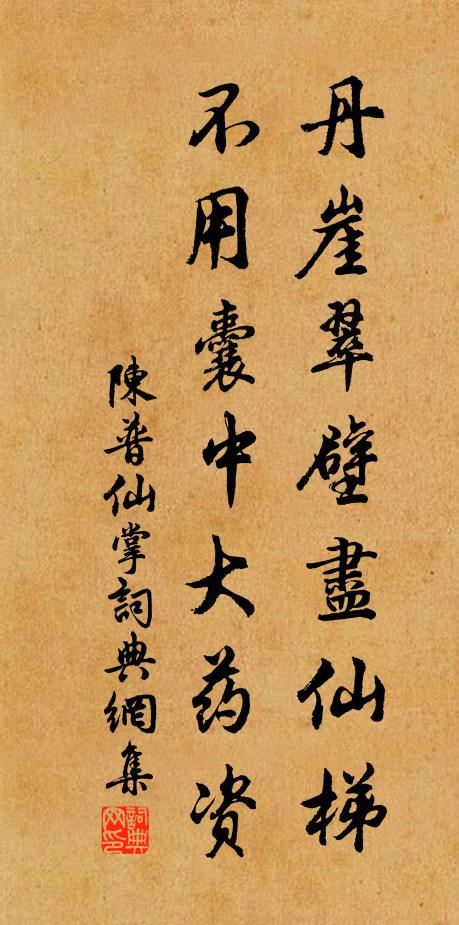 丹崖翠壁盡仙梯
不用囊中大药资
陳普仙掌詞典網集
詞典网印